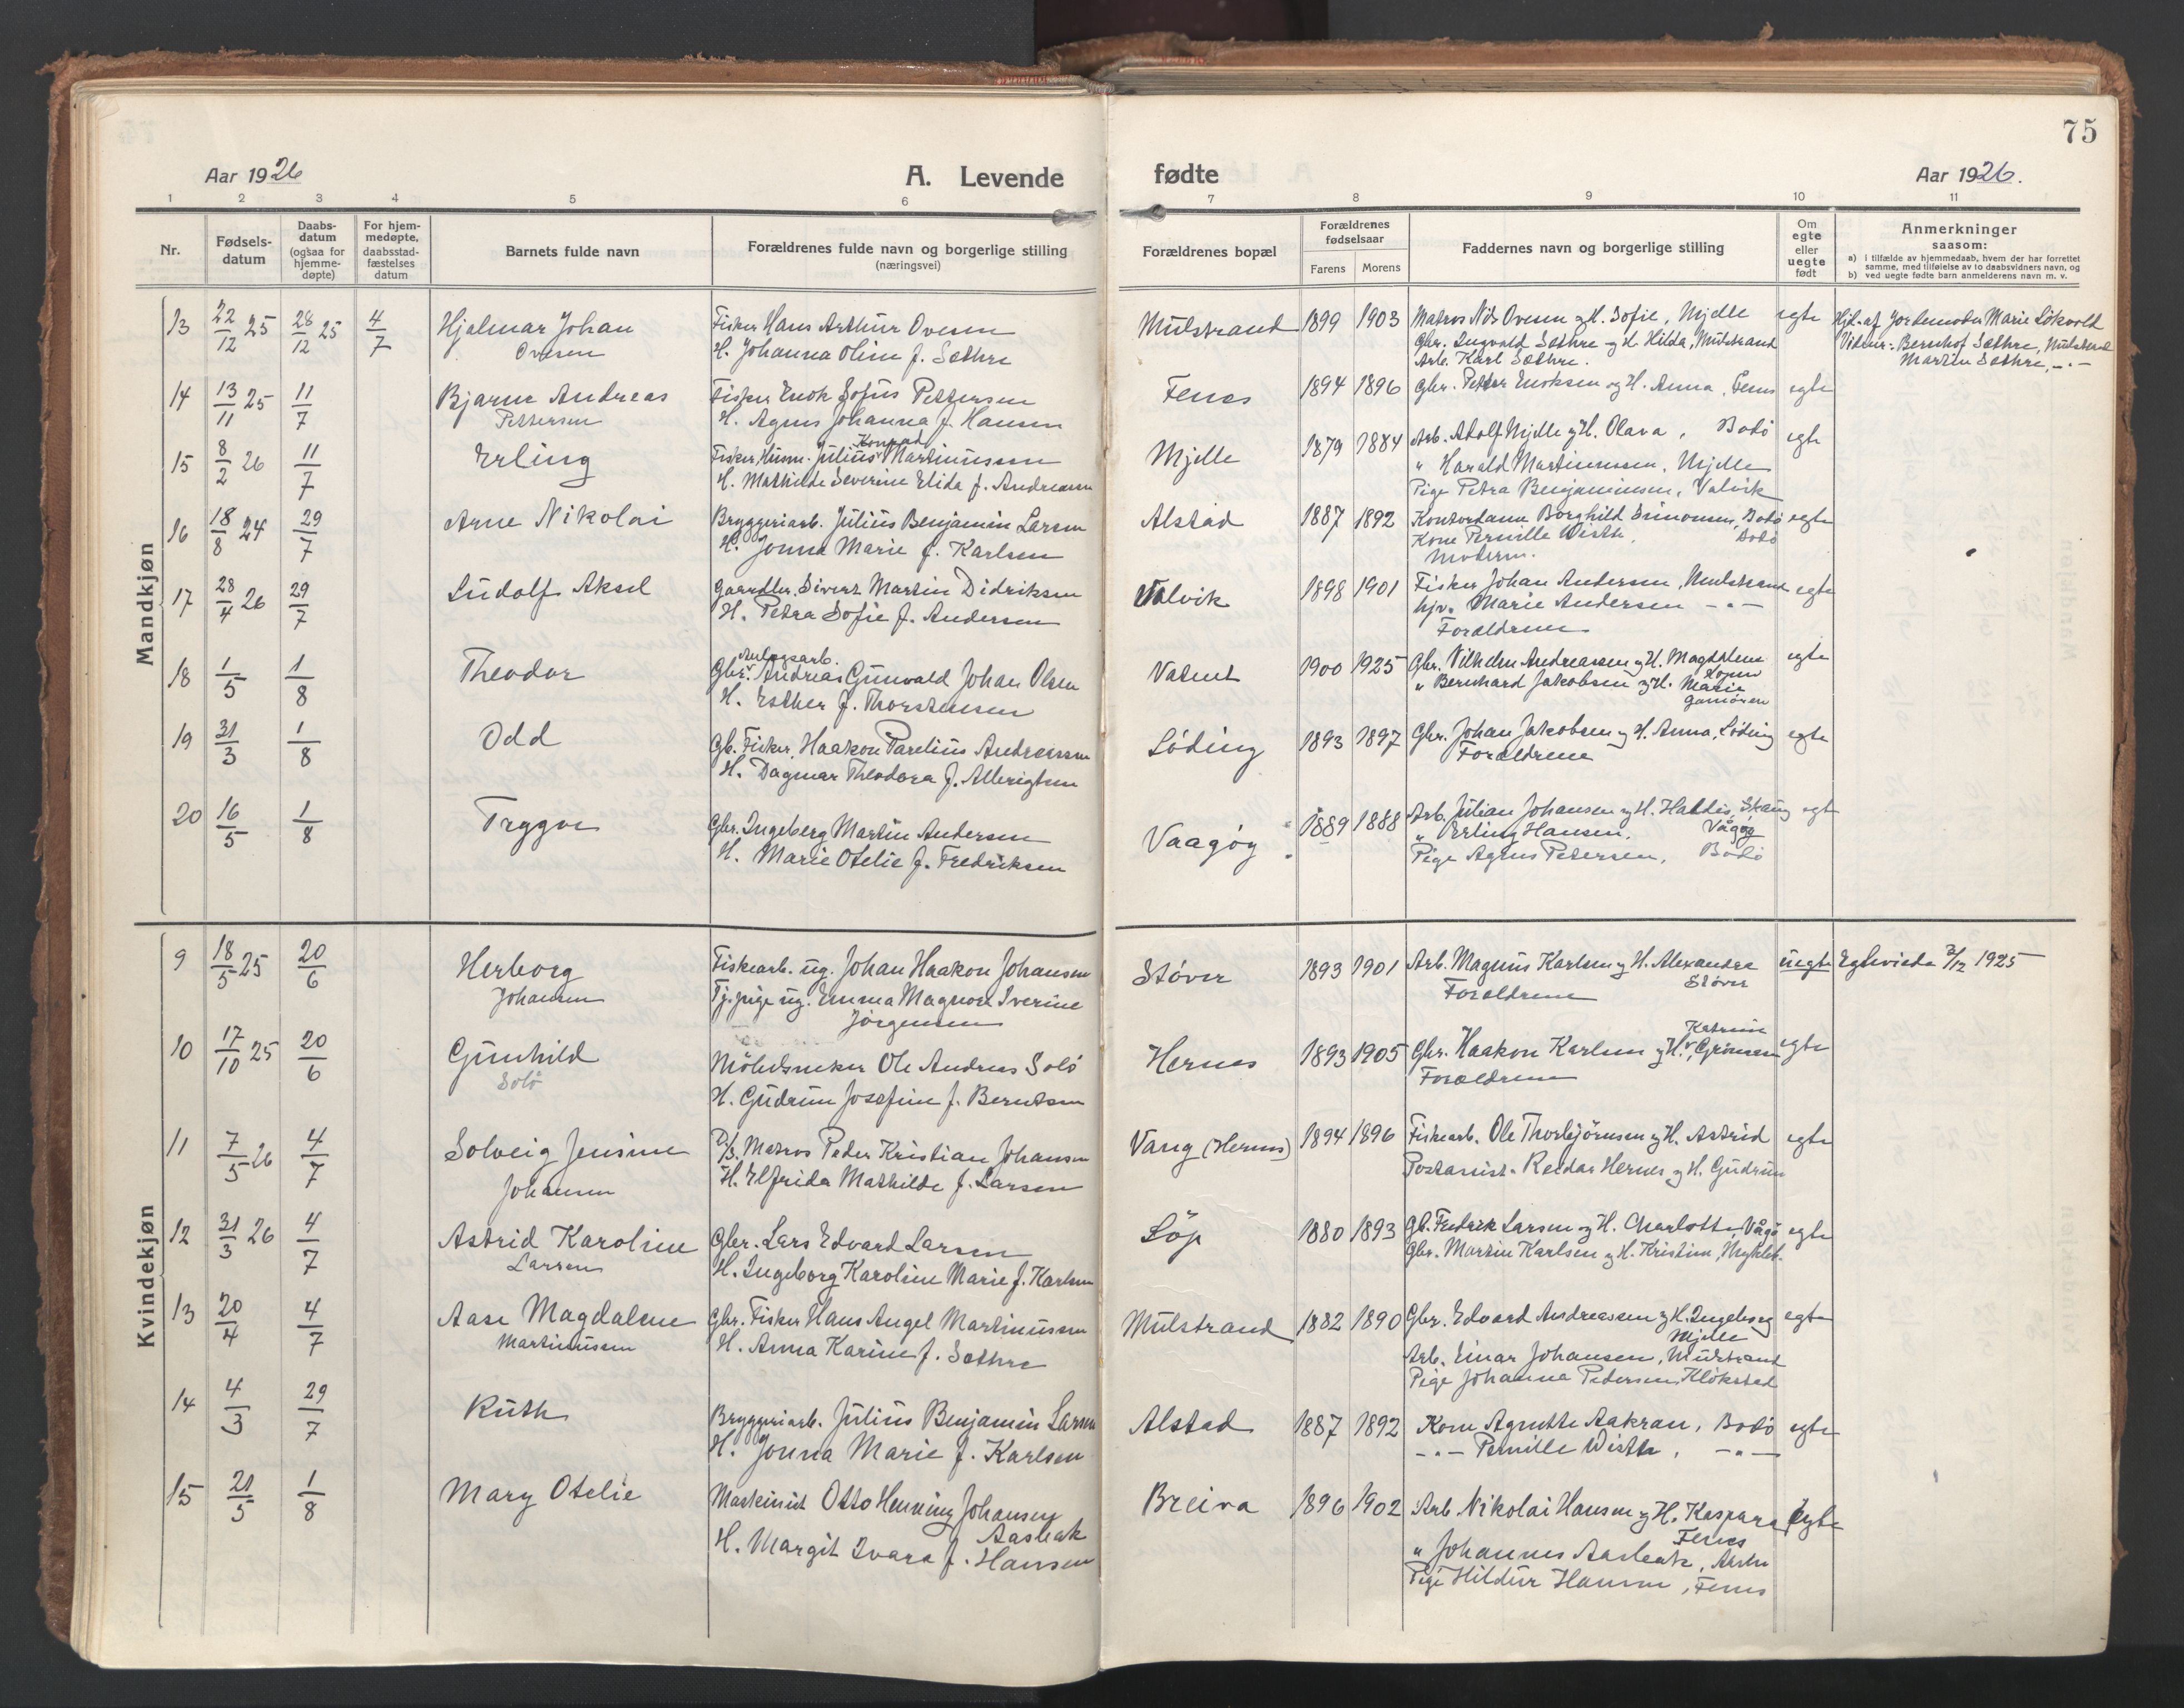 75
Aar 1926
A. Levende fødte
Aar 1926.
1 2 3 4 5 6 7 8 9 10 11
Nr.
Fødsels-
datum
Daabs-
datum
(ogsaa for
hjemme-
døpte)
For hjem-
medøpte,
daabsstad-
fæstelses
datum
Barnets fulde navn
Forældrenes fulde navn og borgerlige stilling
(næringsvei)
Forældrenes bopæl
Forældrenes
fødselsaar
Farens Morens
Faddernes navn og borgerlige stilling
Om
egte
eller
uegte
født
Anmerkninger
saasom:
a) i tilfælde av hjemmedaab, hvem der har forrettet
samme, med tilføielse av to daabsvidners navn, og
b) ved uegte fødte barn anmelderens navn m. v.
Mandkjøn
13 22/12 25 28/12 25 4/7 Hjalmar Johan Fisker Hans Arthur Ovesen Mulstrand 1899 1903 Matros Nils Ovesen og H. Sofie, Mjelle egte Hjd. af Jordemoder Marie Løkvold
Ovesen H. Johanna Oline f. Sæthre Gbr. Ingvald Sæthre og H. Hilda, Mulstrand Vidner: Bernhof Sæthre, Mulstrand
Arb. Karl Sæthre. Martin Sæthre, -"-
14 13/11 25 11/7 Bjarne Andreas Fisker Enok Sofus Pettersen Fenes 1894 1896 Gbr. Petter Enoksen og H. Anna, Fenes egte
Pettersen H. Agnes Johanna f. Hansen
15 8/2 26 11/7 Erling Fisker, Husm. Julius Konrad Martinussen Mjelle 1879 1884 Arb. Adolf Mjelle og H. Olava, Bodö egte
H. Mathilde Severine Elida f. Andreasen " Harald Martinussen, Mjelle
Pige Petra Benjaminsen, Valvik
16 18/8 24 29/7 Arne Nikolai Bryggeriarb. Julius Benjamin Larsen Alstad 1887 1892 Kontordame Borghild Simonsen, Bodö egte
H. Jonna Marie f. Karlsen Kone Pernille Wisth, Bodö
Moderen.
17 28/4 26 29/7 Ludolf Aksel Gaardbr. Sivert Martin Didriksen Valvik 1898 1901 Fisker Johan Andersen, Mulstrand egte
H. Petra Sofie f. Andersen hjv. Marie Andersen -"-
Forældrene
18 1/5 1/8 Theodor Gbr. Anlegsarb. Andreas Gunvald Johan Olsen Vatnet 1900 1925 Gbr. Vilhelm Andreassen og H. Magdalene egte
H. Esther f. Thorstensen " Bernhard Jakobsen og H. Marie
19 31/3 1/8 Odd Gb. Fisker, Haakon Parelius Andreassen Löding 1893 1897 Gbr. Johan Jakobsen og H. Anna, Löding egte
H. Dagmar Theodora f. Albrigtsen Forældrene
20 16/5 1/8 Trygve Gbr. Ingeberg Martin Andersen Vaagöy 1889 1888 Arb. Julian Johansen og H. Haldis, Skaug egte
H. Marie Otelie f. Fredriksen " Erling Hansen, Vågöy
Pige Agnes Petersen, Bodö
Kvindekjøn
9 18/5 25 20/6 Herborg Fiskearb. ug. Johan Haakon Johansen Støver 1893 1901 Arb. Magnus Karlsen og H. Alexandra uegte Egteviede 3/12 1925
Johansen Tj.pige ug. Emma Magnore Iverine Forældrene Støver
Jörgensen
10 17/10 25 20/6 Gunhild Möbelsnekker Ole Andreas Solö Hernes 1893 1905 Gbr. Haakon Karlsen og H. Katrine, Grönnesen egte
Solö H. Gudrun Josefine f. Berntsen Forældrene
11 7/5 26 4/7 Solveig Jensine D/S. Matros Peder Kristian Johansen Vang (Hernes) 1894 1896 Fiskearb. Ole Thorbjörnsen og H. Astrid egte
Johansen H. Elfrida Mathilde f. Larsen Postassist. Reidar Hernes og H. Gudrun
12 31/3 26 4/7 Astrid Karoline Gbr. Lars Edvard Larsen Löp 1880 1893 Gb. Fredrik Larsen og H. Charlotte, Vågö egte
Larsen H. Ingeborg Karoline Marie f. Karlsen Gbr. Martin Karlsen og H. Kristine,
13 20/4 4/7 Aase Magdalene Gbr. Fisker Hans Angel Martinussen Mulstrand 1882 1890 Gbr. Edvard Andreassen og H. Ingeborg egte
Martinussen H. Anna Karine f. Sæthre Mjelle
Arb. Einar Johansen, Mulstrand
Pige Johanna Pedersen, Klökstad
14 4/3 29/7 Ruth Bryggeriarb. Julius Benjamin Larsen Alstad 1887 1892 Kone Agnethe Aakran, Bodö egte
H. Jonna Marie f. Karlsen -"- Pernille Wisth, -"-
15 21/5 1/8 Mary Otelie Maskinist Otto Henning Johansen Breiva 1896 1902 Arb. Nikolai Hansen og H. Kaspara egte
Aasbak Fenes
H. Margit Ivara f. Hansen " Johannes Aasbak,
Pige Hildur Hansen, Fenes